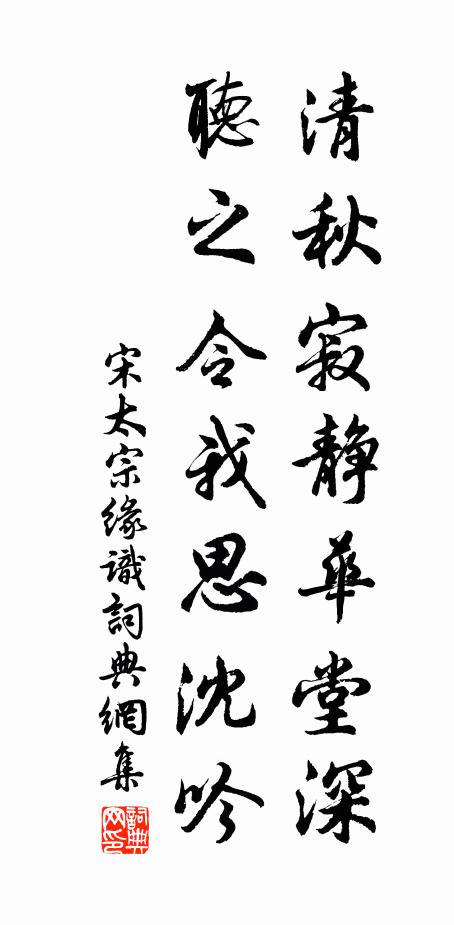 清秋寂靜華堂深
聽之令我思沈吟
宋太宗緣識詞典網集
詞典网印